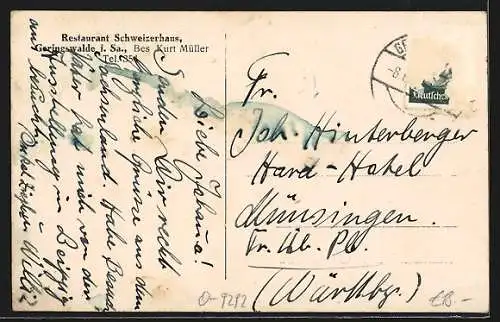 Restaurant Schweizerhaus,
Geringswalde i. Sa., Bes Kurt Müller
Tel. 351
Liebe Johanna!
Senden Dir recht
herzliche Grüsse aus dem
Sachsenland. Habe Bemm
Väter hat mich von der
Ausstellung in Leipzig
aus besucht.
Willi
Fr.
Joh. Hinterberger
Hard-Hotel
Münsingen.
Tr. Üb. Pl.
(Württbg.)
Deutsches
O-9292